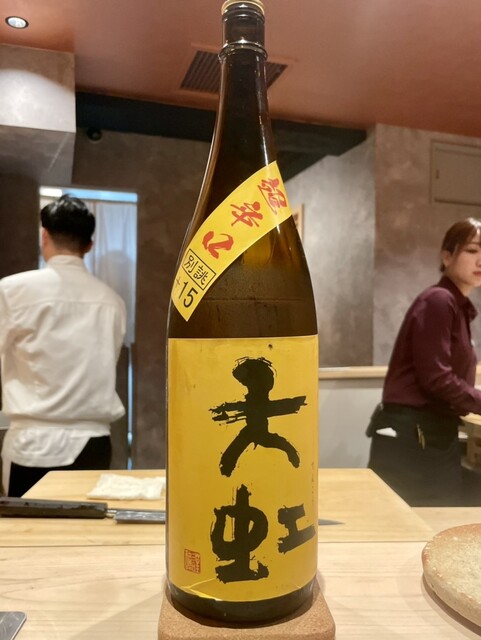 超辛口
別誂
+15
天虹